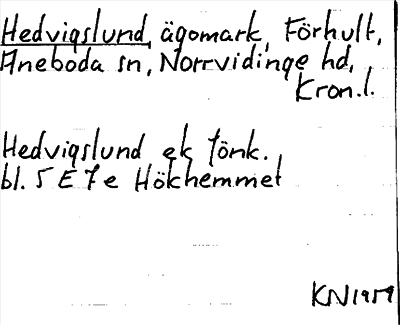 Hedvigslund, ägomark, Förhult,
Aneboda sn, Norrvidinge hd,
Kron.l.
Hedvigslund ek fönk.
bl. 5 E 7 e Hökhemmet
KN 1959